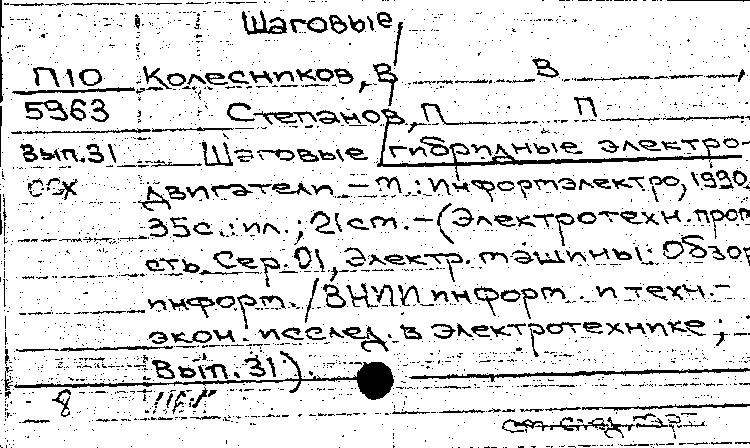 Шаговые
П10 Колесников, В В
5963 Степанов, П П
Вып.31 Шаговые гибридные электро-
ООХ двигатели. – М.: Информэлектро, 1990
35с.:ил.; 21см. – (Электротехн. пром
сть. Сер. 01, Электр. машины: Обзор
информ. / ВНИИ информ. и техн.-
экон. исслед. в электротехнике;
Вып. 31).
8